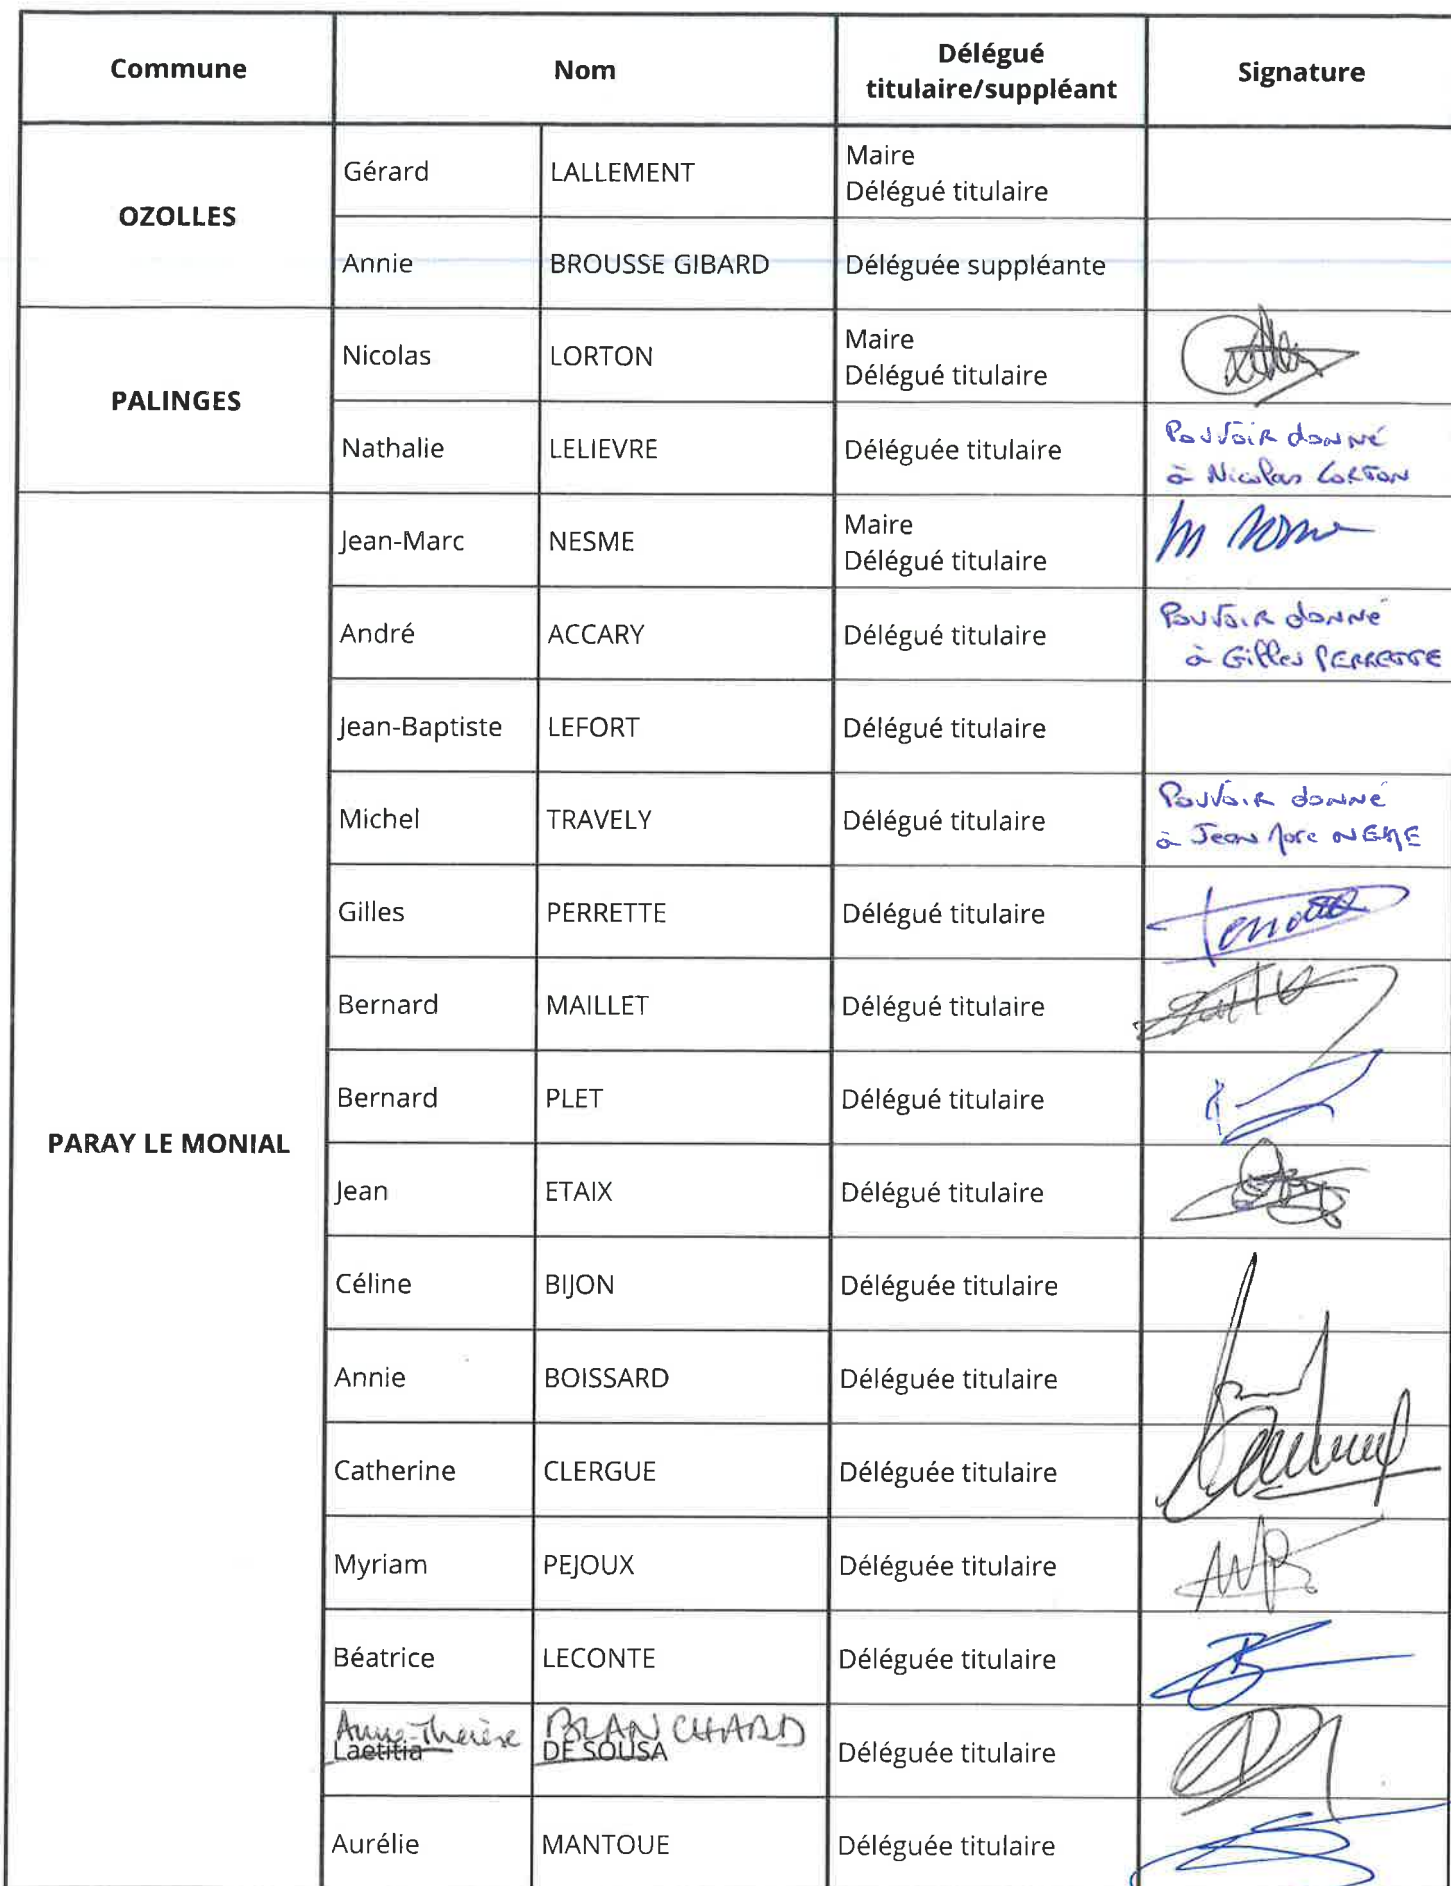 Commune Nom Délégué titulaire/suppléant Signature
OZOLLES
Gérard LALLEMENT Maire Délégué titulaire
Annie BROUSSE GIBARD Déléguée suppléante
PALINGES
Nicolas LORTON Maire Délégué titulaire
Nathalie LELIEVRE Déléguée titulaire Pouvoir donné à Nicolas LORTON
PARAY LE MONIAL
Jean-Marc NESME Maire Délégué titulaire
André ACCARY Délégué titulaire Pouvoir donné à Gilles PERRETTE
Jean-Baptiste LEFORT Délégué titulaire
Michel TRAVELY Délégué titulaire Pouvoir donné à Jean Marc NESME
Gilles PERRETTE Délégué titulaire
Bernard MAILLET Délégué titulaire
Bernard PLET Délégué titulaire
Jean ETAIX Délégué titulaire
Céline BIJON Déléguée titulaire
Annie BOISSARD Déléguée titulaire
Catherine CLERGUE Déléguée titulaire
Myriam PEJOUX Déléguée titulaire
Béatrice LECONTE Déléguée titulaire
Anne-Thérèse BLANCHARD
Laetitia DE SOUSA Déléguée titulaire
Aurélie MANTOUE Déléguée titulaire